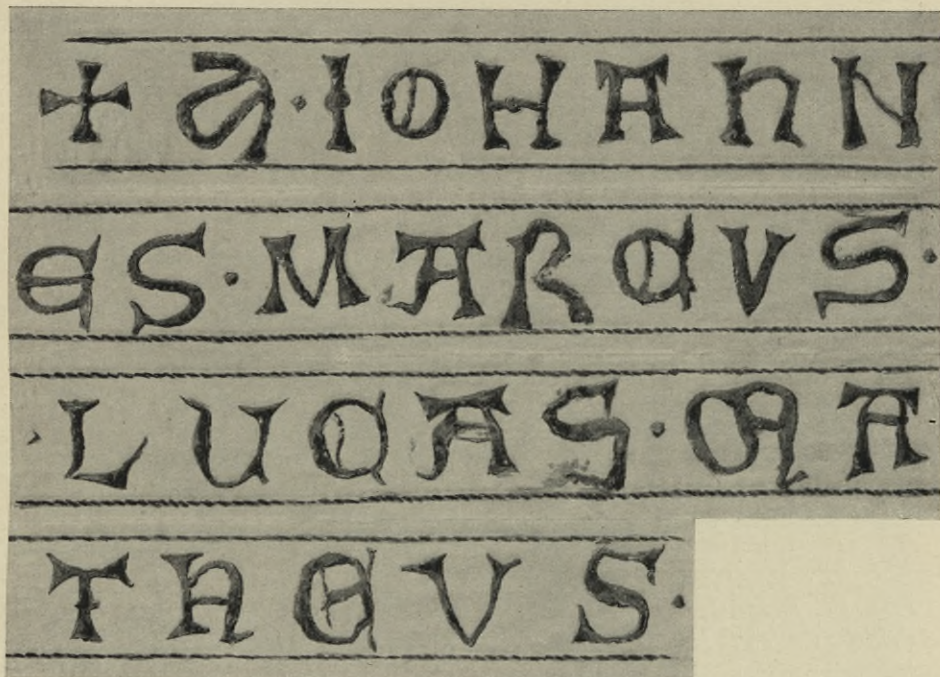 + S·IOHANN
ES·MARCVS·
·LUCAS·MA
THEVS·